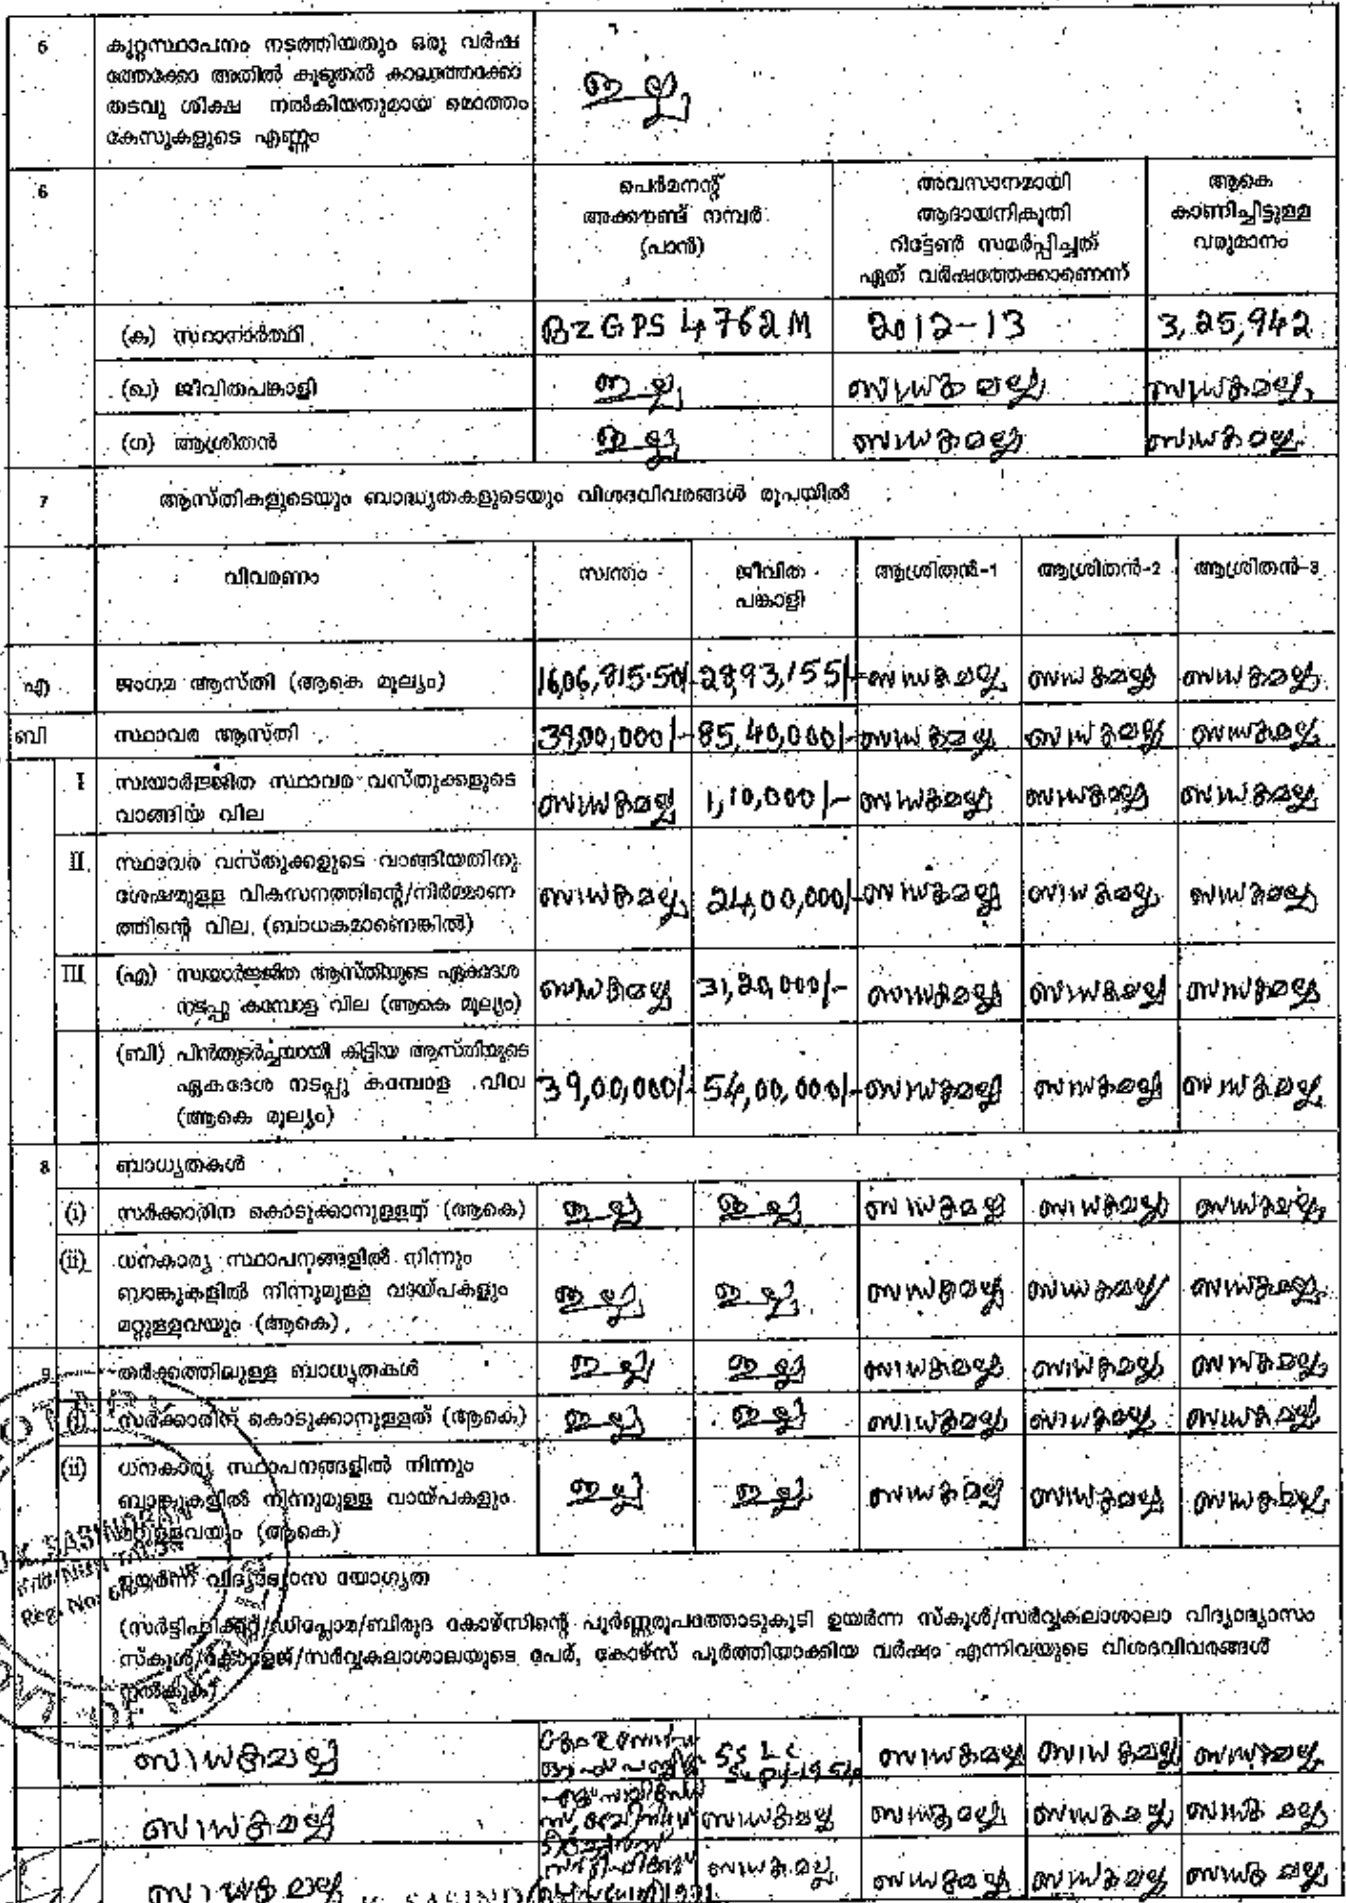 5 കുറ്റസ്ഥാപനം നടത്തിയതും ഒരു വർഷ
ത്തേക്കോ അതിൽ കൂടുതൽ കാലത്തേക്കോ
തടവു ശിക്ഷ നൽകിയതുമായ മൊത്തം
കേസുകളുടെ എണ്ണം
ഇല്ല
6 പെർമനന്റ് അവസാനമായി ആകെ
അക്കൗണ്ട് നമ്പർ ആദായനികുതി കാണിച്ചിട്ടുള്ള
(പാൻ) റിട്ടേൺ സമർപ്പിച്ചത് വരുമാനം
ഏത് വർഷത്തേക്കാണെന്ന്
(ക) സ്ഥാനാർത്ഥി BZGPS 4762M 2012-13 3,25,942
(ഖ) ജീവിതപങ്കാളി ഇല്ല ബാധകമല്ല ബാധകമല്ല
(ഗ) ആശ്രിതൻ ഇല്ല ബാധകമല്ല ബാധകമല്ല
7 ആസ്തികളുടെയും ബാദ്ധ്യതകളുടെയും വിശദവിവരങ്ങൾ രൂപയിൽ
വിവരണം സ്വന്തം ജീവിത ആശ്രിതൻ-1 ആശ്രിതൻ-2 ആശ്രിതൻ-3
പങ്കാളി
എ ജംഗമ ആസ്തി (ആകെ മൂല്യം) 1606,815.50/- 28,93,155/- ബാധകമല്ല ബാധകമല്ല ബാധകമല്ല
ബി സ്ഥാവര ആസ്തി 39,00,000/- 85,40,000/- ബാധകമല്ല ബാധകമല്ല ബാധകമല്ല
I സ്വയാർജ്ജിത സ്ഥാവര വസ്തുക്കളുടെ
വാങ്ങിയ വില ബാധകമല്ല 1,10,000/- ബാധകമല്ല ബാധകമല്ല ബാധകമല്ല
II സ്ഥാവര വസ്തുക്കളുടെ വാങ്ങിയതിനു
ശേഷമുള്ള വികസനത്തിന്റെ/നിർമ്മാണ
ത്തിന്റെ വില (ബാധകമാണെങ്കിൽ) ബാധകമല്ല 24,00,000/- ബാധകമല്ല ബാധകമല്ല ബാധകമല്ല
III (എ) സ്വയാർജ്ജിത ആസ്തിയുടെ ഏകദേശ
നടപ്പു കമ്പോള വില (ആകെ മൂല്യം) ബാധകമല്ല 31,20,000/- ബാധകമല്ല ബാധകമല്ല ബാധകമല്ല
(ബി) പിൻതുടർച്ചയായി കിട്ടിയ ആസ്തിയുടെ
ഏകദേശ നടപ്പു കമ്പോള വില 39,00,000/- 54,00,000/- ബാധകമല്ല ബാധകമല്ല ബാധകമല്ല
(ആകെ മൂല്യം)
8 ബാധ്യതകൾ
(i) സർക്കാരിന കൊടുക്കാനുള്ളത് (ആകെ) ഇല്ല ഇല്ല ബാധകമല്ല ബാധകമല്ല ബാധകമല്ല
(ii) ധനകാര്യ സ്ഥാപനങ്ങളിൽ നിന്നും
ബാങ്കുകളിൽ നിന്നുമുള്ള വായ്പകളും
മറ്റുള്ളവയും (ആകെ) ഇല്ല ഇല്ല ബാധകമല്ല ബാധകമല്ല ബാധകമല്ല
9 തർക്കത്തിലുള്ള ബാധ്യതകൾ ഇല്ല ഇല്ല ബാധകമല്ല ബാധകമല്ല ബാധകമല്ല
(i) സർക്കാരിന് കൊടുക്കാനുള്ളത് (ആകെ) ഇല്ല ഇല്ല ബാധകമല്ല ബാധകമല്ല ബാധകമല്ല
(ii) ധനകാര്യ സ്ഥാപനങ്ങളിൽ നിന്നും
ബാങ്കുകളിൽ നിന്നുമുള്ള വായ്പകളും
മറ്റുള്ളവയും (ആകെ) ഇല്ല ഇല്ല ബാധകമല്ല ബാധകമല്ല ബാധകമല്ല
ഉയർന്ന വിദ്യാഭ്യാസ യോഗ്യത
(സർട്ടിഫിക്കറ്റ്/ഡിപ്ലോമ/ബിരുദ കോഴ്സിന്റെ പൂർണ്ണരൂപത്തോടുകൂടി ഉയർന്ന സ്കൂൾ/സർവ്വകലാശാലാ വിദ്യാഭ്യാസം
സ്കൂൾ/കോളേജ്/സർവ്വകലാശാലയുടെ പേര്, കോഴ്സ് പൂർത്തിയാക്കിയ വർഷം എന്നിവയുടെ വിശദവിവരങ്ങൾ
നൽകുക)
ബാധകമല്ല SSLC ബാധകമല്ല ബാധകമല്ല ബാധകമല്ല
ബാധകമല്ല ബാധകമല്ല ബാധകമല്ല ബാധകമല്ല ബാധകമല്ല
ബാധകമല്ല 1991 ബാധകമല്ല ബാധകമല്ല ബാധകമല്ല ബാധകമല്ല